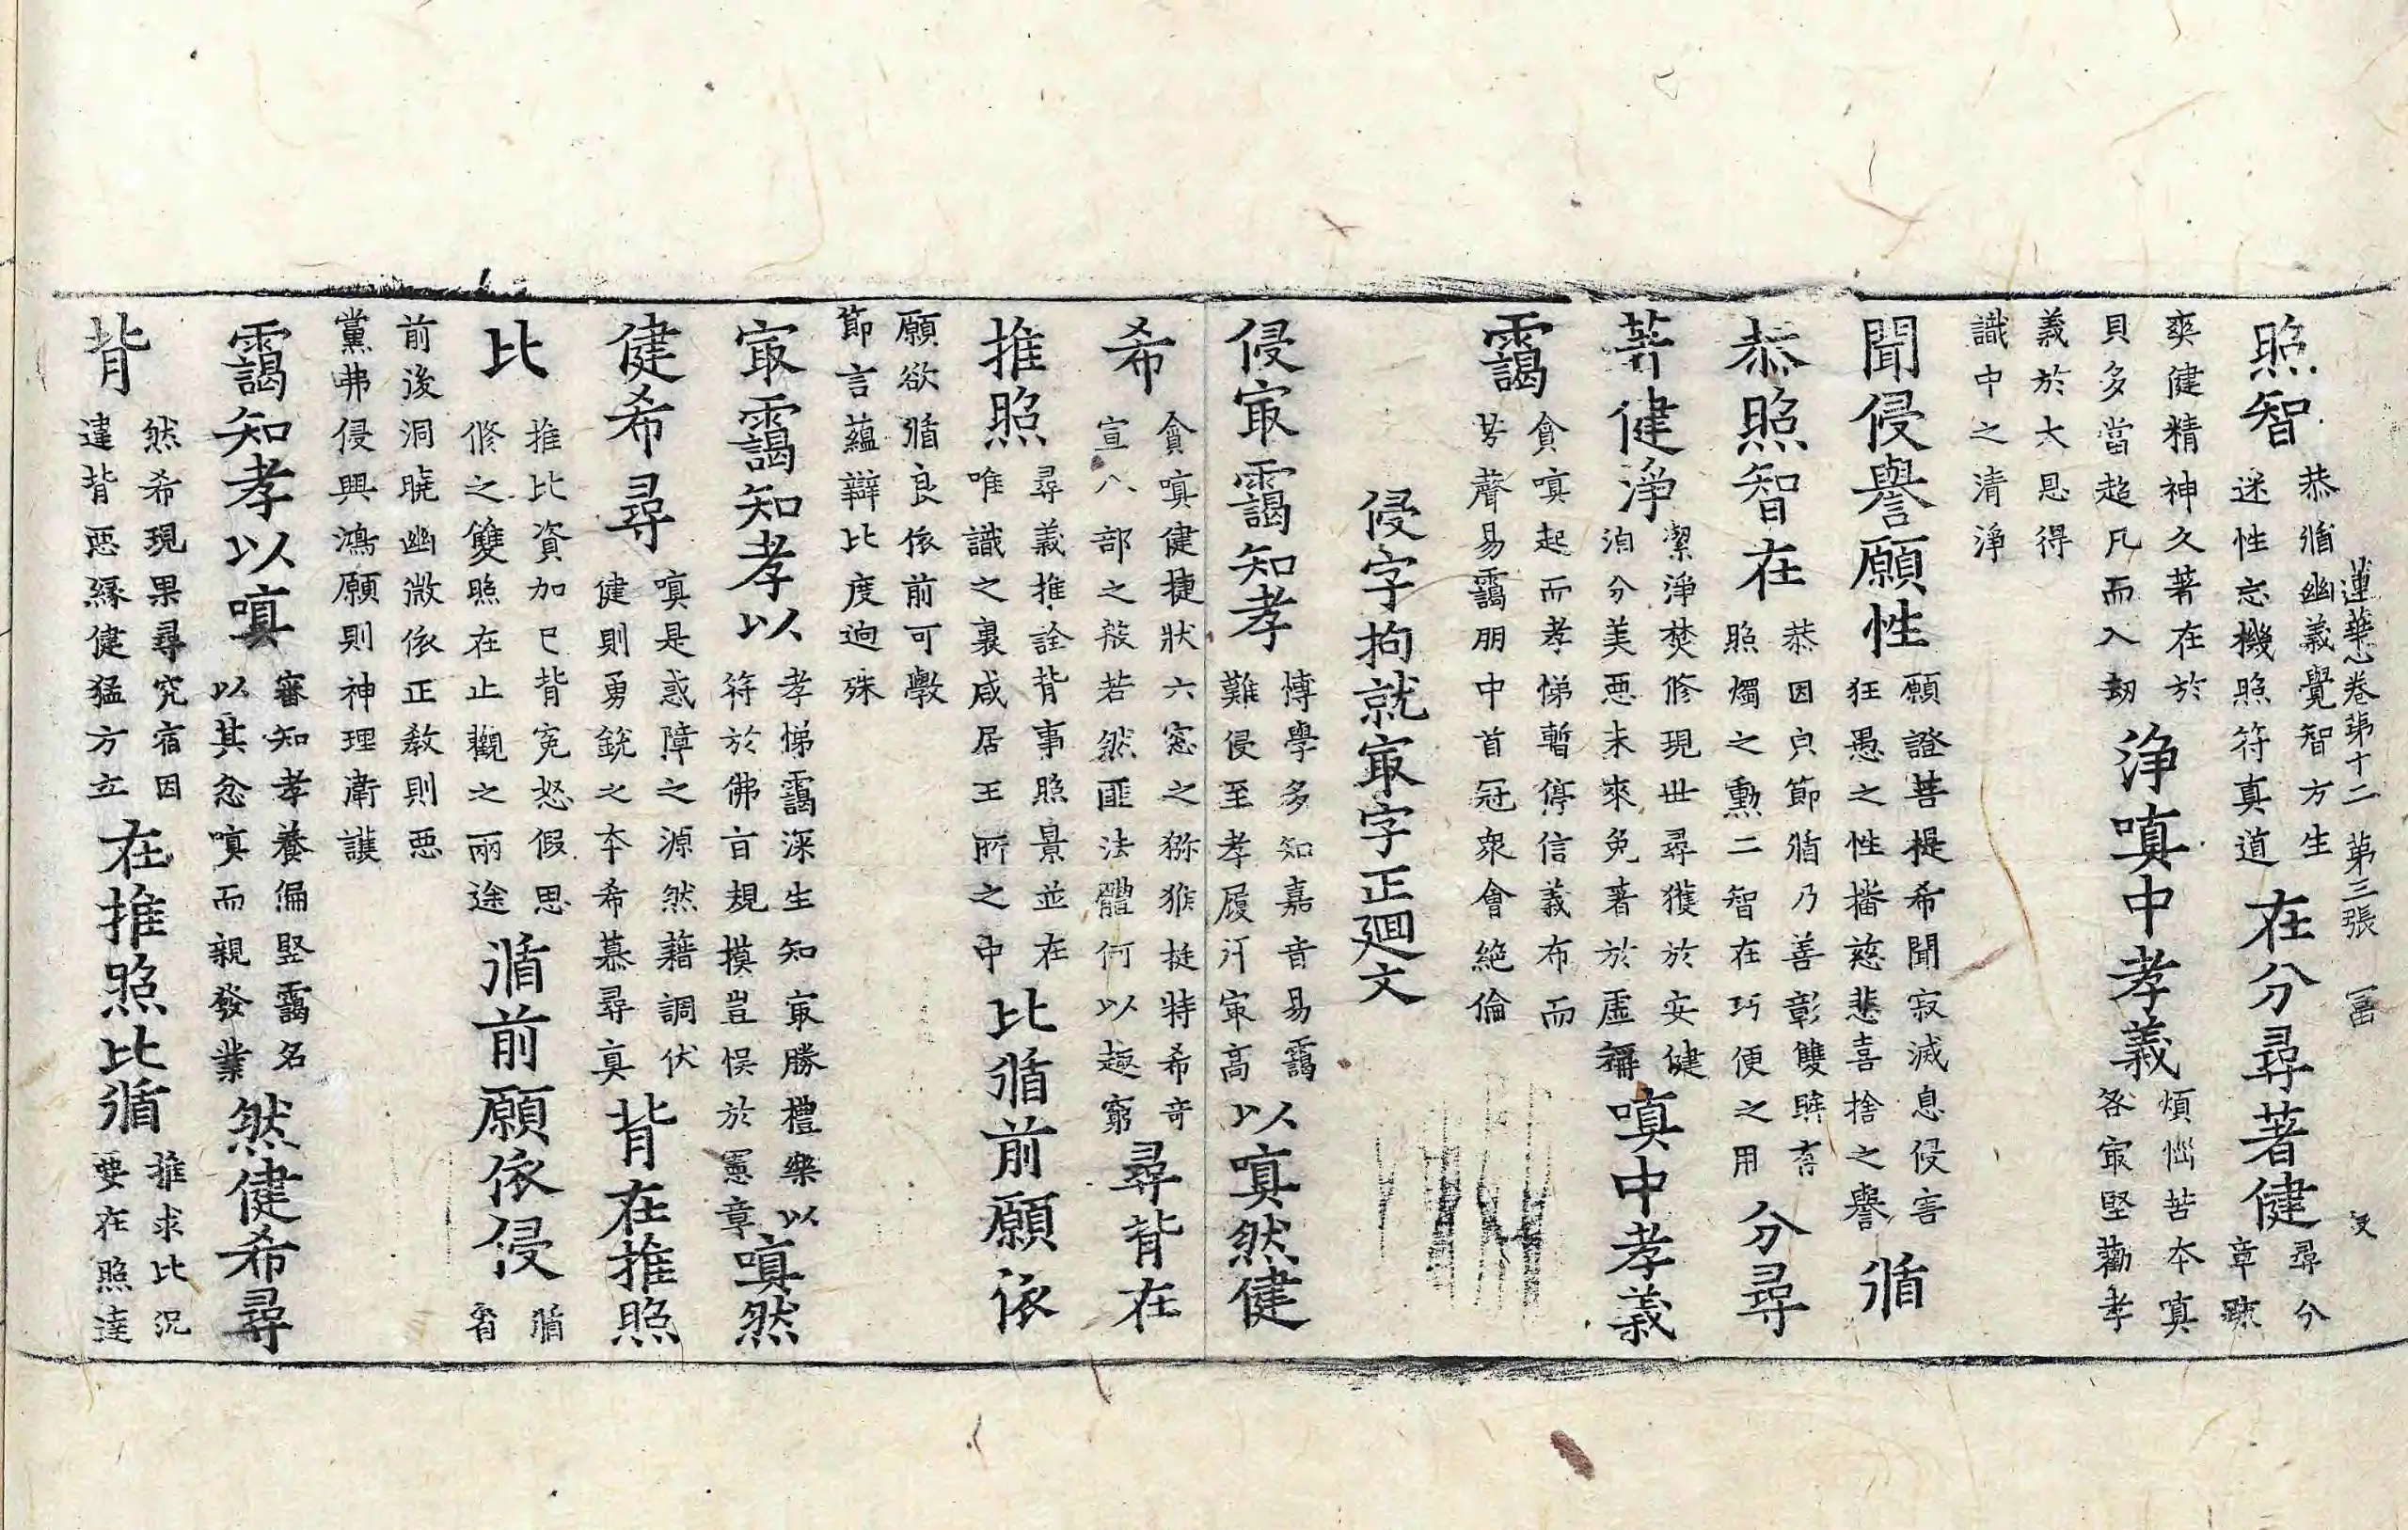 照智恭循幽義覺智方生迷性忘機照符真道在分尋著健尋分章疏
蓮華心卷第十二 第三張
爽健精神久著在於貝多當超凡而入刼淨嗔中孝義煩惱苦本嗔各㝡堅勸孝
義於大恩得識中之清淨
聞侵譽願性願證菩提希聞寂滅息侵害狂愚之性播慈悲喜捨之譽循
恭照智在恭因貞節循乃善彰雙眸照燭之勳二智在巧便之用分尋
著健淨潔淨焚修現世尋獲於安健洎分美惡未來免著於虛嗔中孝義
靄貪嗔起而孝悌暫停信義布而芳聲易靄朋中首冠衆會絶倫
侵字拘就㝡字正廻文
侵㝡靄知孝博學多知嘉音易靄難侵至孝履行㝡高以嗔然健
希貪嗔健捷狀六窓之猕猴挺特希奇宣八部之般若然匪法體何以趣窮尋背在
推照尋義推詮背事照景並在唯識之裏咸居王所之中比循前願依
願欲循良依前可斅節言蘊辯比度逈殊
㝡靄知孝以孝悌靄深生知㝡勝禮樂以符於佛旨規摸豈悮於憲章嗔然
健希尋嗔是惑障之源然藉調伏健則勇銳之本希慕尋真背在推照
比推比資加已背寃怒假思修之雙照在止觀之兩途循前願依侵循省
前後洞曉幽微依正教則惡黨弗侵興鴻願則神理衛護
靄知孝以嗔審知孝養偏堅靄名以其忿嗔而親發業然健希尋
背然希現果尋究宿因違背惡緣健猛方立在推照比循推求比況要在照達